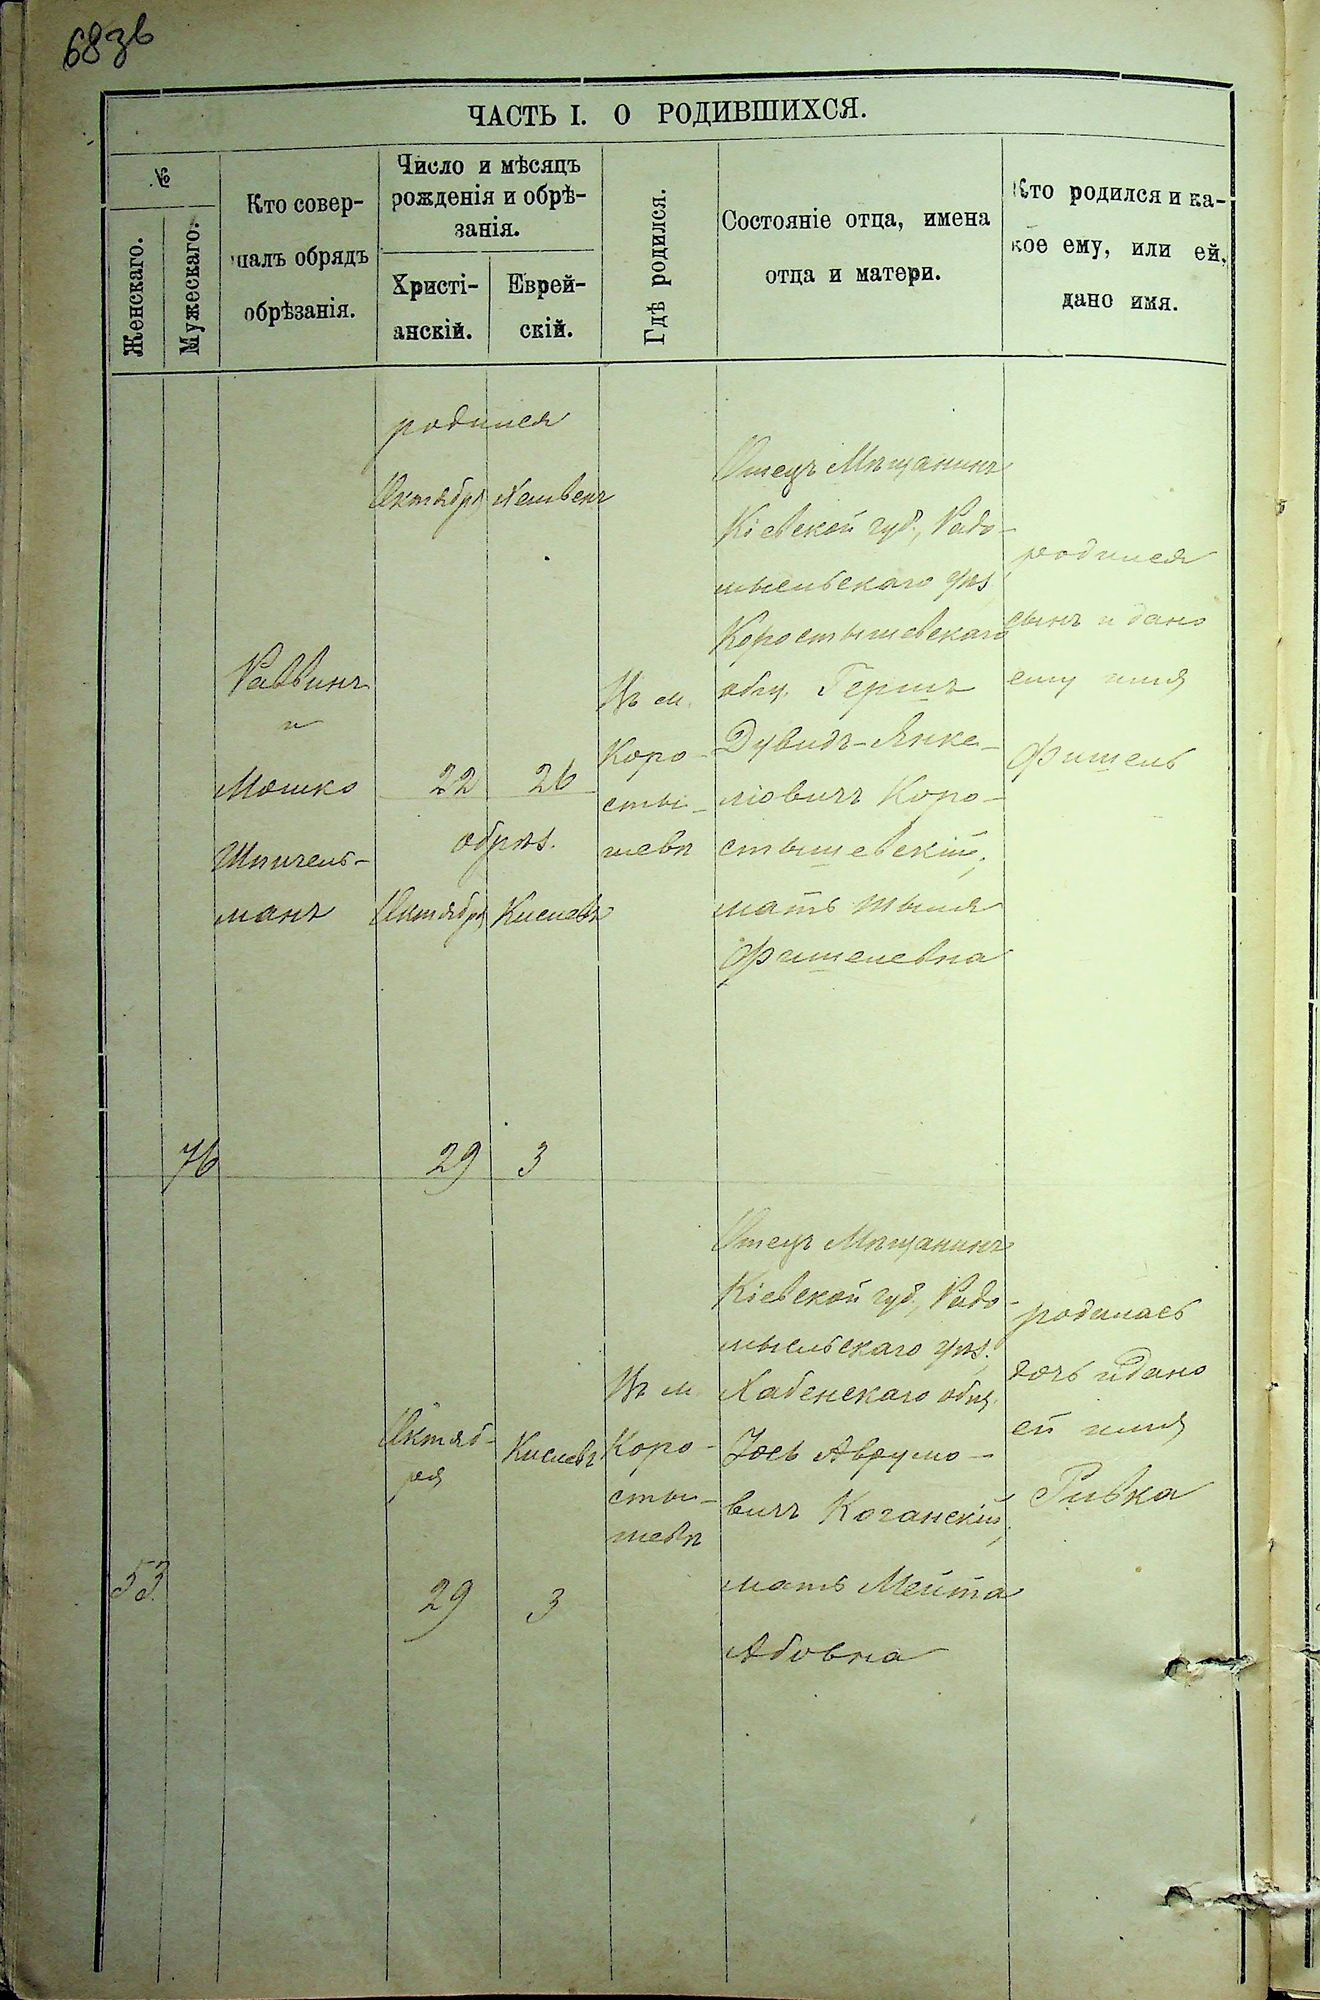 68зв
ЧАСТЬ I. О РОДИВШИХСЯ.
№
Женскаго.
Мужескаго.
Кто совер-
шалъ обрядъ
обрѣзанія.
Число и мѣсяцъ
рожденія и обрѣ-
занія.
Христі-
анскій.
Еврей-
скій.
Гдѣ родился.
Состояніе отца, имена
отца и матери.
Кто родился и ка-
кое ему, или ей,
дано имя.
76
Раввинъ
и
Мошко
Шпигель-
манъ
родился
Октября Хешвенъ
22 26
обрѣз.
Октября Кислевъ
29 3
Въ м.
Коро-
сты-
шевѣ
Отецъ Мѣщанинъ
Кіевской губ., Радо-
мысльскаго уѣз
Коростышевскаго
общ. Гершъ
Дувидъ-Янке-
ліовичъ Коро-
стышевскій,
мать
Фишелевна
родился
сынъ и дано
ему имя
Фишель
53
Октяб-
ря
29
Кислевъ
3
Въ м.
Коро-
сты-
шевѣ
Отецъ Мѣщанинъ
Кіевской губ., Радо-
мысльскаго уѣз.
Хабенскаго общ.
Іось Аврумо-
вичъ Коганскій,
мать Мейта
Абовна
родилась
дочь и дано
ей имя
Ривка